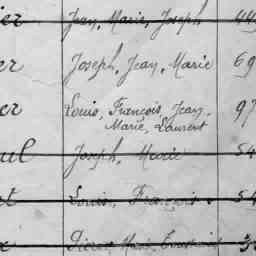 ier Jean, Marie, Joseph 44
er Joseph, Jean, Marie 69
er Louis, François, Jean, 97
Marie, Laurent
ul Joseph, Marie 54
t Louis, François 54
Pierre, Marie, Toussaint